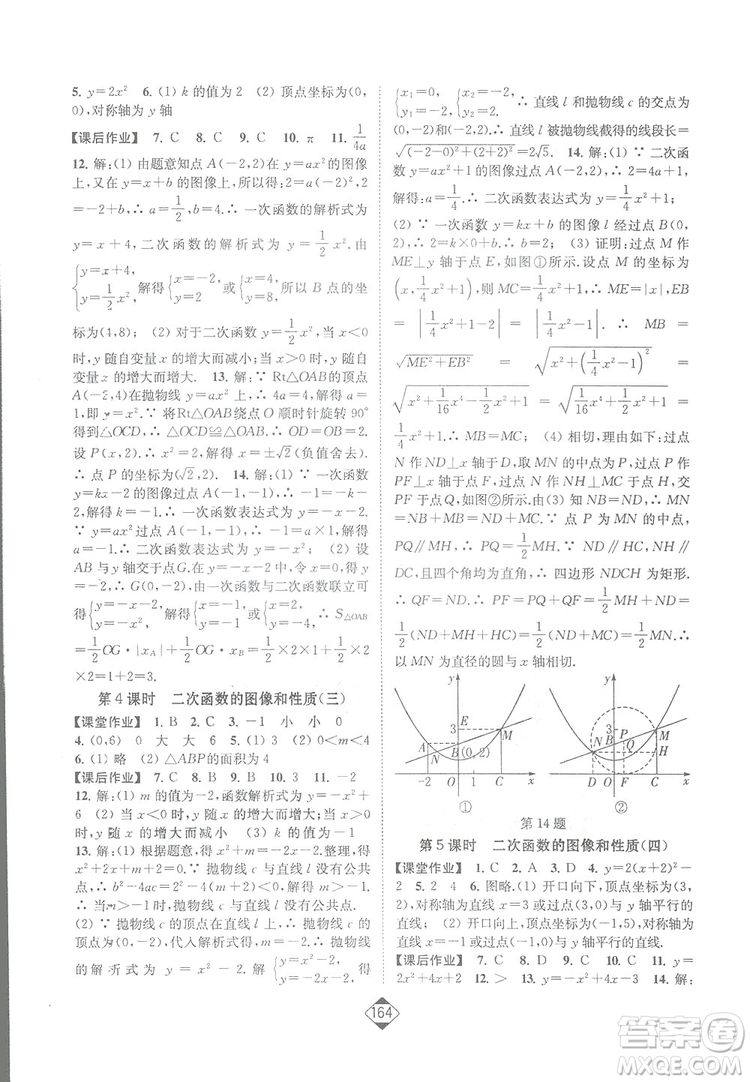 5. y=2x²　6. (1) k的值为2　(2) 顶点坐标为(0,
0),对称轴为y轴
【课后作业】　7. C　8. C　9. C　10. π　11. 1/(4a)
12. 解:(1) 由题意知点A(-2,2)在y=ax²的图像
上,又在y=x+b的图像上.所以得:2=a(-2)²,2
=-2+b,∴a=1/2,b=4.∴一次函数的解析式为
y=x+4,二次函数的解析式为y=1/2x².由
{y=x+4, y=1/2x², 解得{x=-2, y=2 或{x=4, y=8. 所以B点的坐
标为(4,8);(2) 对于二次函数y=1/2x²,当x<0
时,y随自变量x的增大而减小;当x>0时,y随自
变量x的增大而增大.　13. 解:∵Rt△OAB的顶点
A(-2,4)在抛物线y=ax²上,∴4=4a,解得a=
1,即y=x².∵将Rt△OAB绕点O顺时针旋转90°
得到△OCD,∴△OCD≌△OAB.∴OD=OB=2.
设P(x,2),∴2=x²,解得x=±√2(负值舍去).
∴点P的坐标为(√2,2)　14. 解:(1)∵一次函数
y=kx-2的图像过点A(-1,-1),∴-1=-k-
2,解得k=-1,∴一次函数表达式为y=-x-2;
∵y=ax²过点A(-1,-1),∴-1=a×1,解得
a=-1.∴二次函数表达式为y=-x²;(2) 设
AB与y轴交于点G.在y=-x-2中,令x=0,得y=
-2,∴G(0,-2),由一次函数与二次函数联立可
得{y=-x-2, y=-x², 解得{x=-1, y=-1 或{x=2, y=-4, ∴S△OAB
=1/2OG·|xA|+1/2OG·|xB|=1/2×2×1+1/2
×2×2=1+2=3.
第4课时　二次函数的图像和性质(三)
【课堂作业】　1. B　2. C　3. -1　小　小　0
4. (0,6)　0　大　大　6　5. (1) 3　(2) 0<m<4
6. (1) 略　(2) △ABP的面积为4
【课后作业】　7. C　8. B　9. B　10. C　11. -2
12. 解:(1) m的值为-2,函数解析式为y=-x²+
6　(2) 当x>0时,y随x的增大而减小　(3) -1
13. 解:(1) 根据题意,得x²+m=x-2,整理,得
x²-x+m+2=0.∵抛物线c与直线l没有公共
点,∴b²-4ac=1-4(m+2)<0.∴m>-7/4
(2) ∵抛物线c的顶点在直线l上,抛物线c的顶
点为(0,m),代入解析式得m=-2,∴抛物线
的解析式为y=x²-2.解{y=x-2, y=x²-2, 得
{x₁=0, y₁=-2, {x₂=1, y₂=-1.
∴直线l和抛物线c的交点为
∴直线l被抛物线截得的线段长=
14. 解:(1) ∵二次函
数y=ax²+1的图像过点A(-2,2),∴2=4a+1,
解得:a=1/4,∴二次函数表达式为y=1/4x²+1
(2) ∵一次函数y=kx+b的图像l经过点B(0,
2),∴2=k×0+b,∴b=2;(3) 证明:过点M作
ME⊥y轴于点E,如图①所示.设点M的坐标为
(x,1/4x²+1),则MC=1/4x²+1,∴ME=|x|,EB=
|1/4x²+1-2|=|1/4x²-1|,∴MB=
√(ME²+EB²)=√(x²+(1/4x²-1)²)=
√(x²+1/16x⁴-1/2x²+1)=√(1/16x⁴+1/2x²+1)=
1/4x²+1.∴MB=MC;(4) 相切,理由如下:过点
N作ND⊥x轴于D,取MN的中点为P,过点P
作PF⊥x轴于点F,过点N作NH⊥MC于点H,交
PF于点Q(如图②所示).由(3)知NB=ND,∴
MN=NB+MB=ND+MC.又∵点P为MN的中点,
PQ∥MH,∴PQ=1/2MH.∵ND∥HC,NH∥
DC,且四个角均为直角,∴四边形NDCH为矩形.
∴QF=ND.∴PF=PQ+QF=1/2MH+ND=
1/2(ND+MH+HC)=1/2(ND+MC)=1/2MN.∴
以MN为直径的圆与x轴相切.
y　3　E　A　B(0,2)　M　-2　O　1　C　x
①
y　3　M　B　P　N　Q　H　D　O　F　C　x
②
第14题
第5课时　二次函数的图像和性质(四)
【课堂作业】　1. C　2. A　3. D　4. y=2(x+2)²-
2　5. 2　4　6. 图略.(1) 开口向下,顶点坐标为(3,
2),对称轴为直线x=3与y轴平行的直线
(2) 开口向上,顶点坐标为(-1,5),对称轴为直线
x=-1与y轴平行的直线.
【课后作业】　7. C　8. C　9. D　10. C　11. y=
2x²+4x+2　12. >　13. x=4　14. 解:
164
答案圈
MXQE.COM